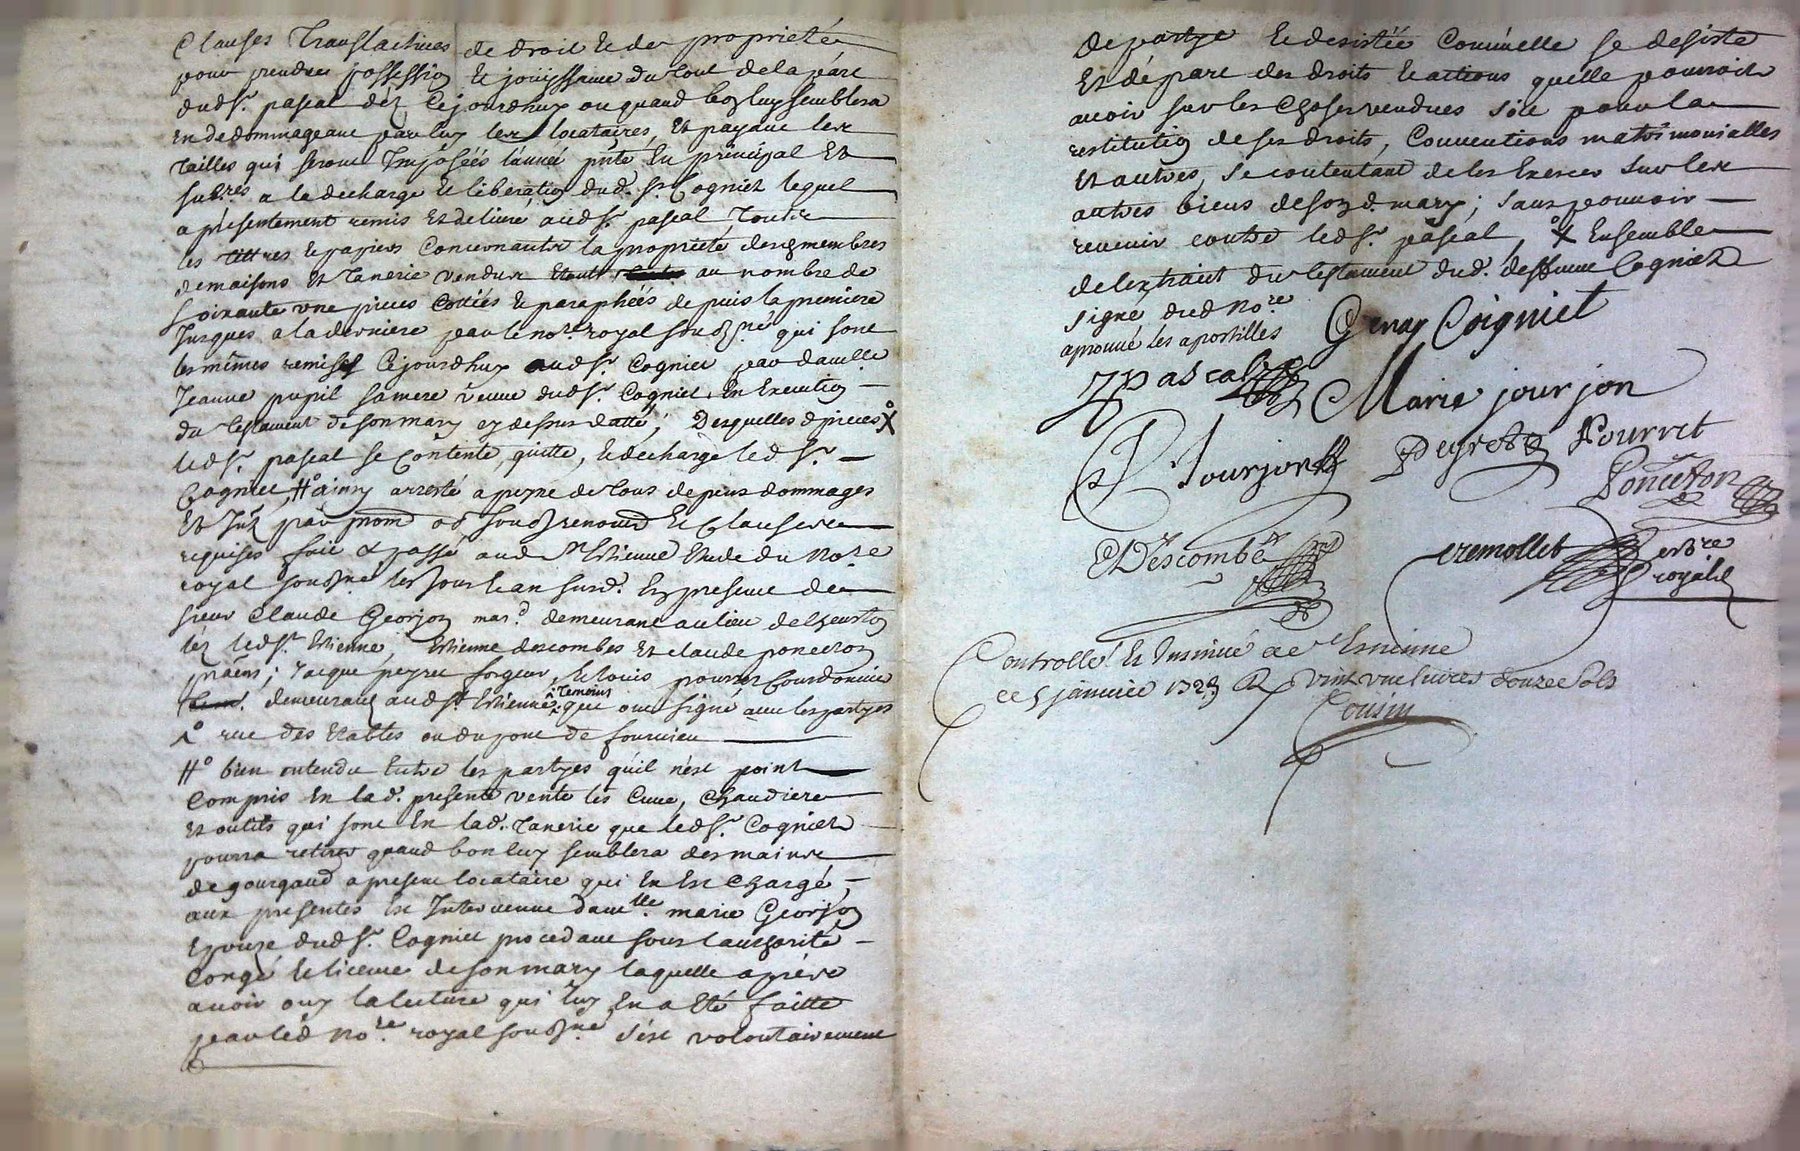 Clauses Translatives de droit et de proprieté
pour prendre possession et joüissance du tout de la part
dud sr. pascal déz Cejourdhuy ou quand bon luy semblera
En dedommageant par luy les locataires, Et payant les
tailles qui seront Imposéés l'année pnte En principal Et
a la decharge Et liberation dud. sr. Cogniet lequel
a présentement remis Et delivré aud sr. pascal, Toutes
les tittres Et papiers Concernants la proprieté desd membres
de maisons Et Tanerie vendus au nombre de
soixante une pieces Cottéés Et paraphéés depuis la premiere
Jusques a la derniere par le nore. royal sousné. qui sont
les mêmes remises Cejourdhuy aud sr. Cogniet par dauelle
Jeanne pupil sa mere veuve dud sr. Cogniet, En Execution
du testament de son mary cy dessus datté, Desquelles d pieces X
led sr. pascal se Contente, quitte, Et decharge led sr.
Cogniet, #° ainsy arresté a peyne de tous depens dommages
Et
requises fait & passé aud St Estienne Etude du Nore
royal sousné. les Jour Et an susd. En presence de
sieur Claude Georjon mard. demeurant au lieu de
léz led St. Estienne, Estienne descombes Et claude ponceton
; Jacque peyret forgeur, Et louis pourret Courdonnier
demeurant aud St Estienne ^ Temoins que ont signé avec les partyes
^° rue des Estables ou du pont de fournieu
#° bien entendu Entre les partyes qu'il n'est point
Compris En lad. presente vente les Cuve, Chaudiere
Et outils qui sont En lad. Tanerie que led sr. Cogniet
pourra retirer quand bon luy semblera des mains
de gourgaud a present locataire qui En Est Chargé,
aux presentes Est Intervenue dauelle. marie Georjon
Epouze dud sr. Cogniet procedant sous l'authorité
Congé Et licence de son mary laquelle aprés
avoir ouy la lecture qui luy En a Eté faitte
par led Nore. royal sousné. s'est volontairement
departye Et desistéé Comm'elle se desiste
Et départ des droits Et actions quelle pourroit
avoir sur les Choses vendues soit pour la
restitution de ses droits, Conventions matrimonialles
Et autres, se contentant de les Exercer sur les
autres biens de son d. mary; sans pouvoir
revenir contre led sr. pascal, X° Ensemble
de l'extrait du testament dud. deffunt Cogniet
signé dud Nore
aprouvé les apostilles
Genay Coigniet
J Pascal
Marie jourjon
Jourjon
Peyret
Pourret
Ponceton
E Descombe
Tremollet
nore
royal
Controllé Et Insinué a St Estienne
ce 5 janvier 1723 R vint une livres douze sols
Cousin